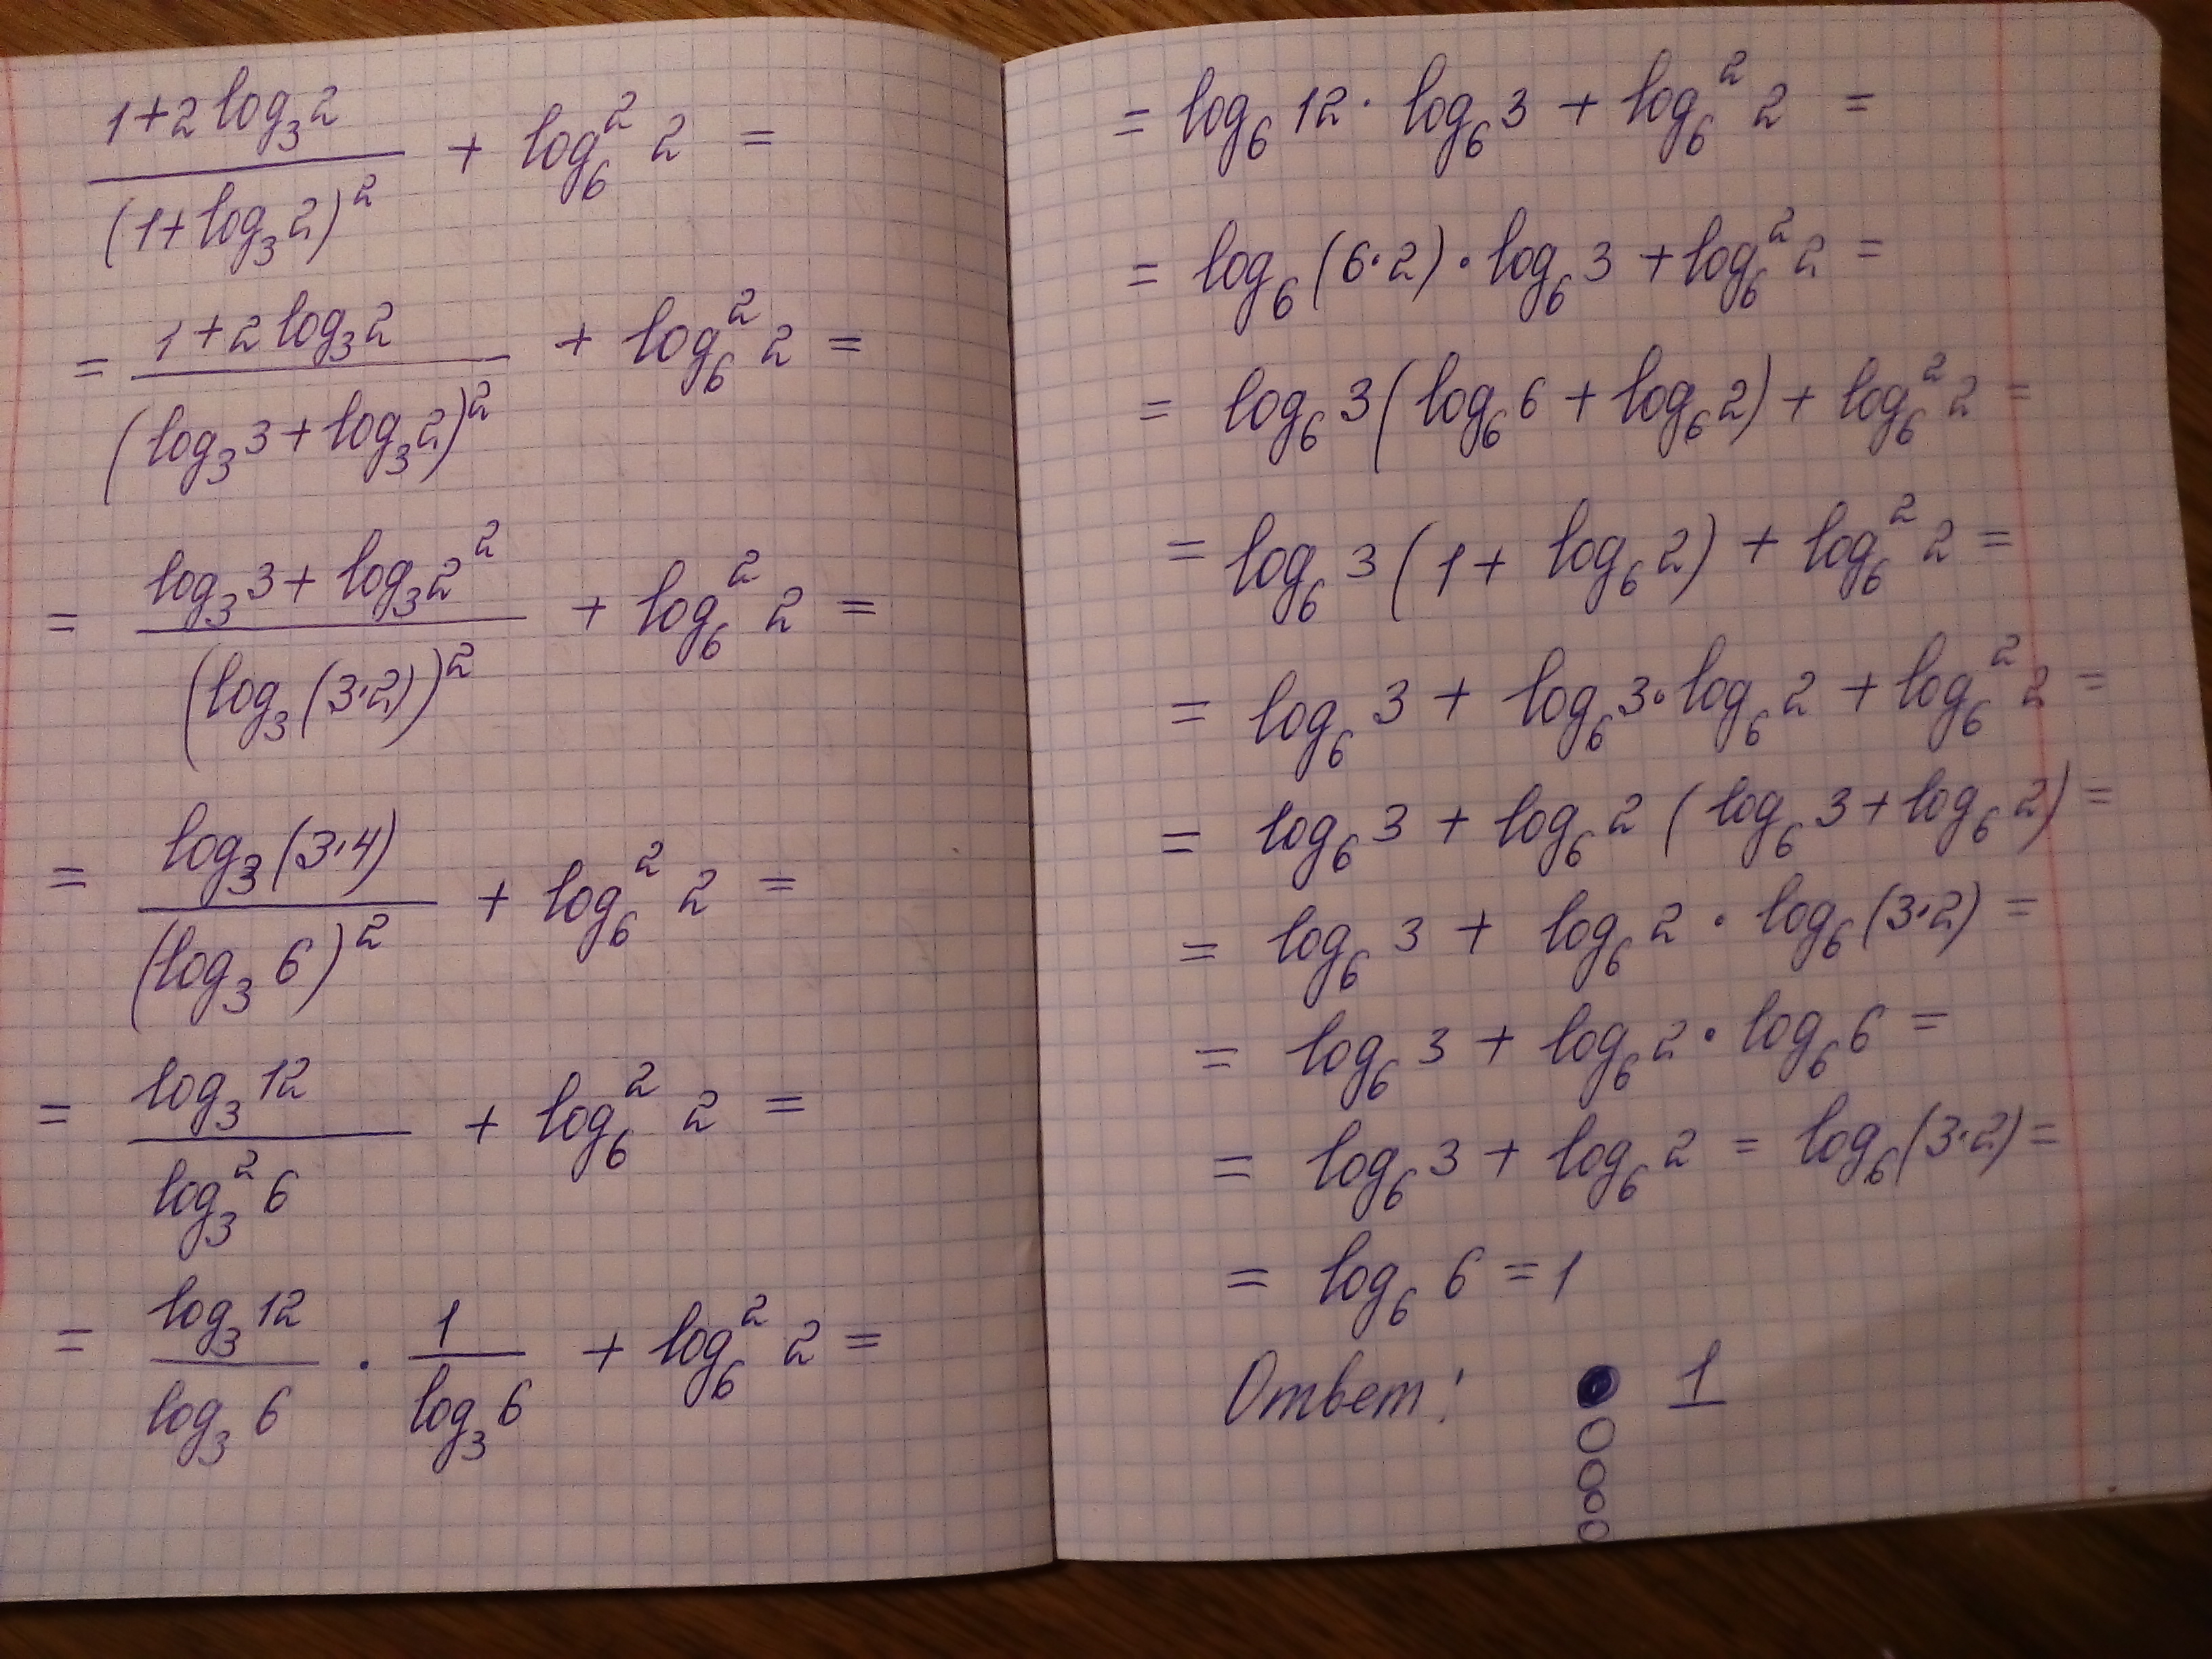 (1+2log₃2)/(1+log₃2)² + log₆²2 =
= (1+2log₃2)/(log₃3+log₃2)² + log₆²2 =
= (log₃3+log₃2²)/(log₃(3·2))² + log₆²2 =
= log₃(3·4)/(log₃6)² + log₆²2 =
= log₃12/log₃²6 + log₆²2 =
= log₃12/log₃6 · 1/log₃6 + log₆²2 =
= log₆12· log₆3 + log₆²2 =
= log₆(6·2)·log₆3 + log₆²2 =
= log₆3(log₆6 + log₆2) + log₆²2 =
= log₆3(1+ log₆2) + log₆²2 =
= log₆3 + log₆3·log₆2 + log₆²2 =
= log₆3 + log₆2(log₆3 + log₆2) =
= log₆3 + log₆2 · log₆(3·2) =
= log₆3 + log₆2·log₆6 =
= log₆3 + log₆2 = log₆(3·2) =
= log₆6 = 1
Ответ: 1